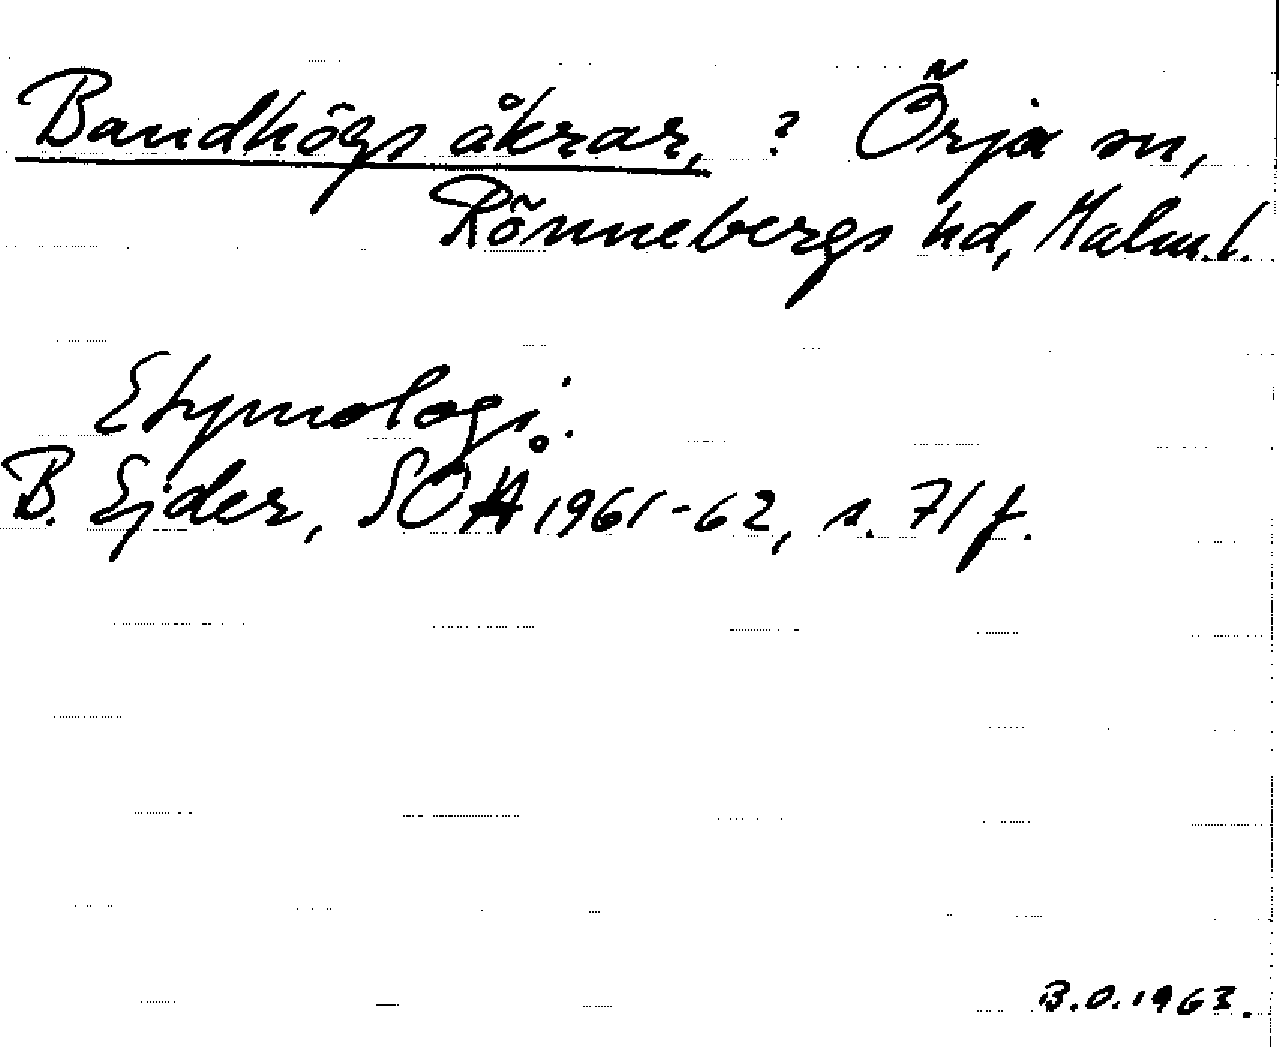 Bandhögs åkrar, ? Örja sn,
Rönnebergs hd, Malm.l.
Etymologi:
B. Ejder, SOÅ 1961-62, s. 71 f.
B.O. 1963.